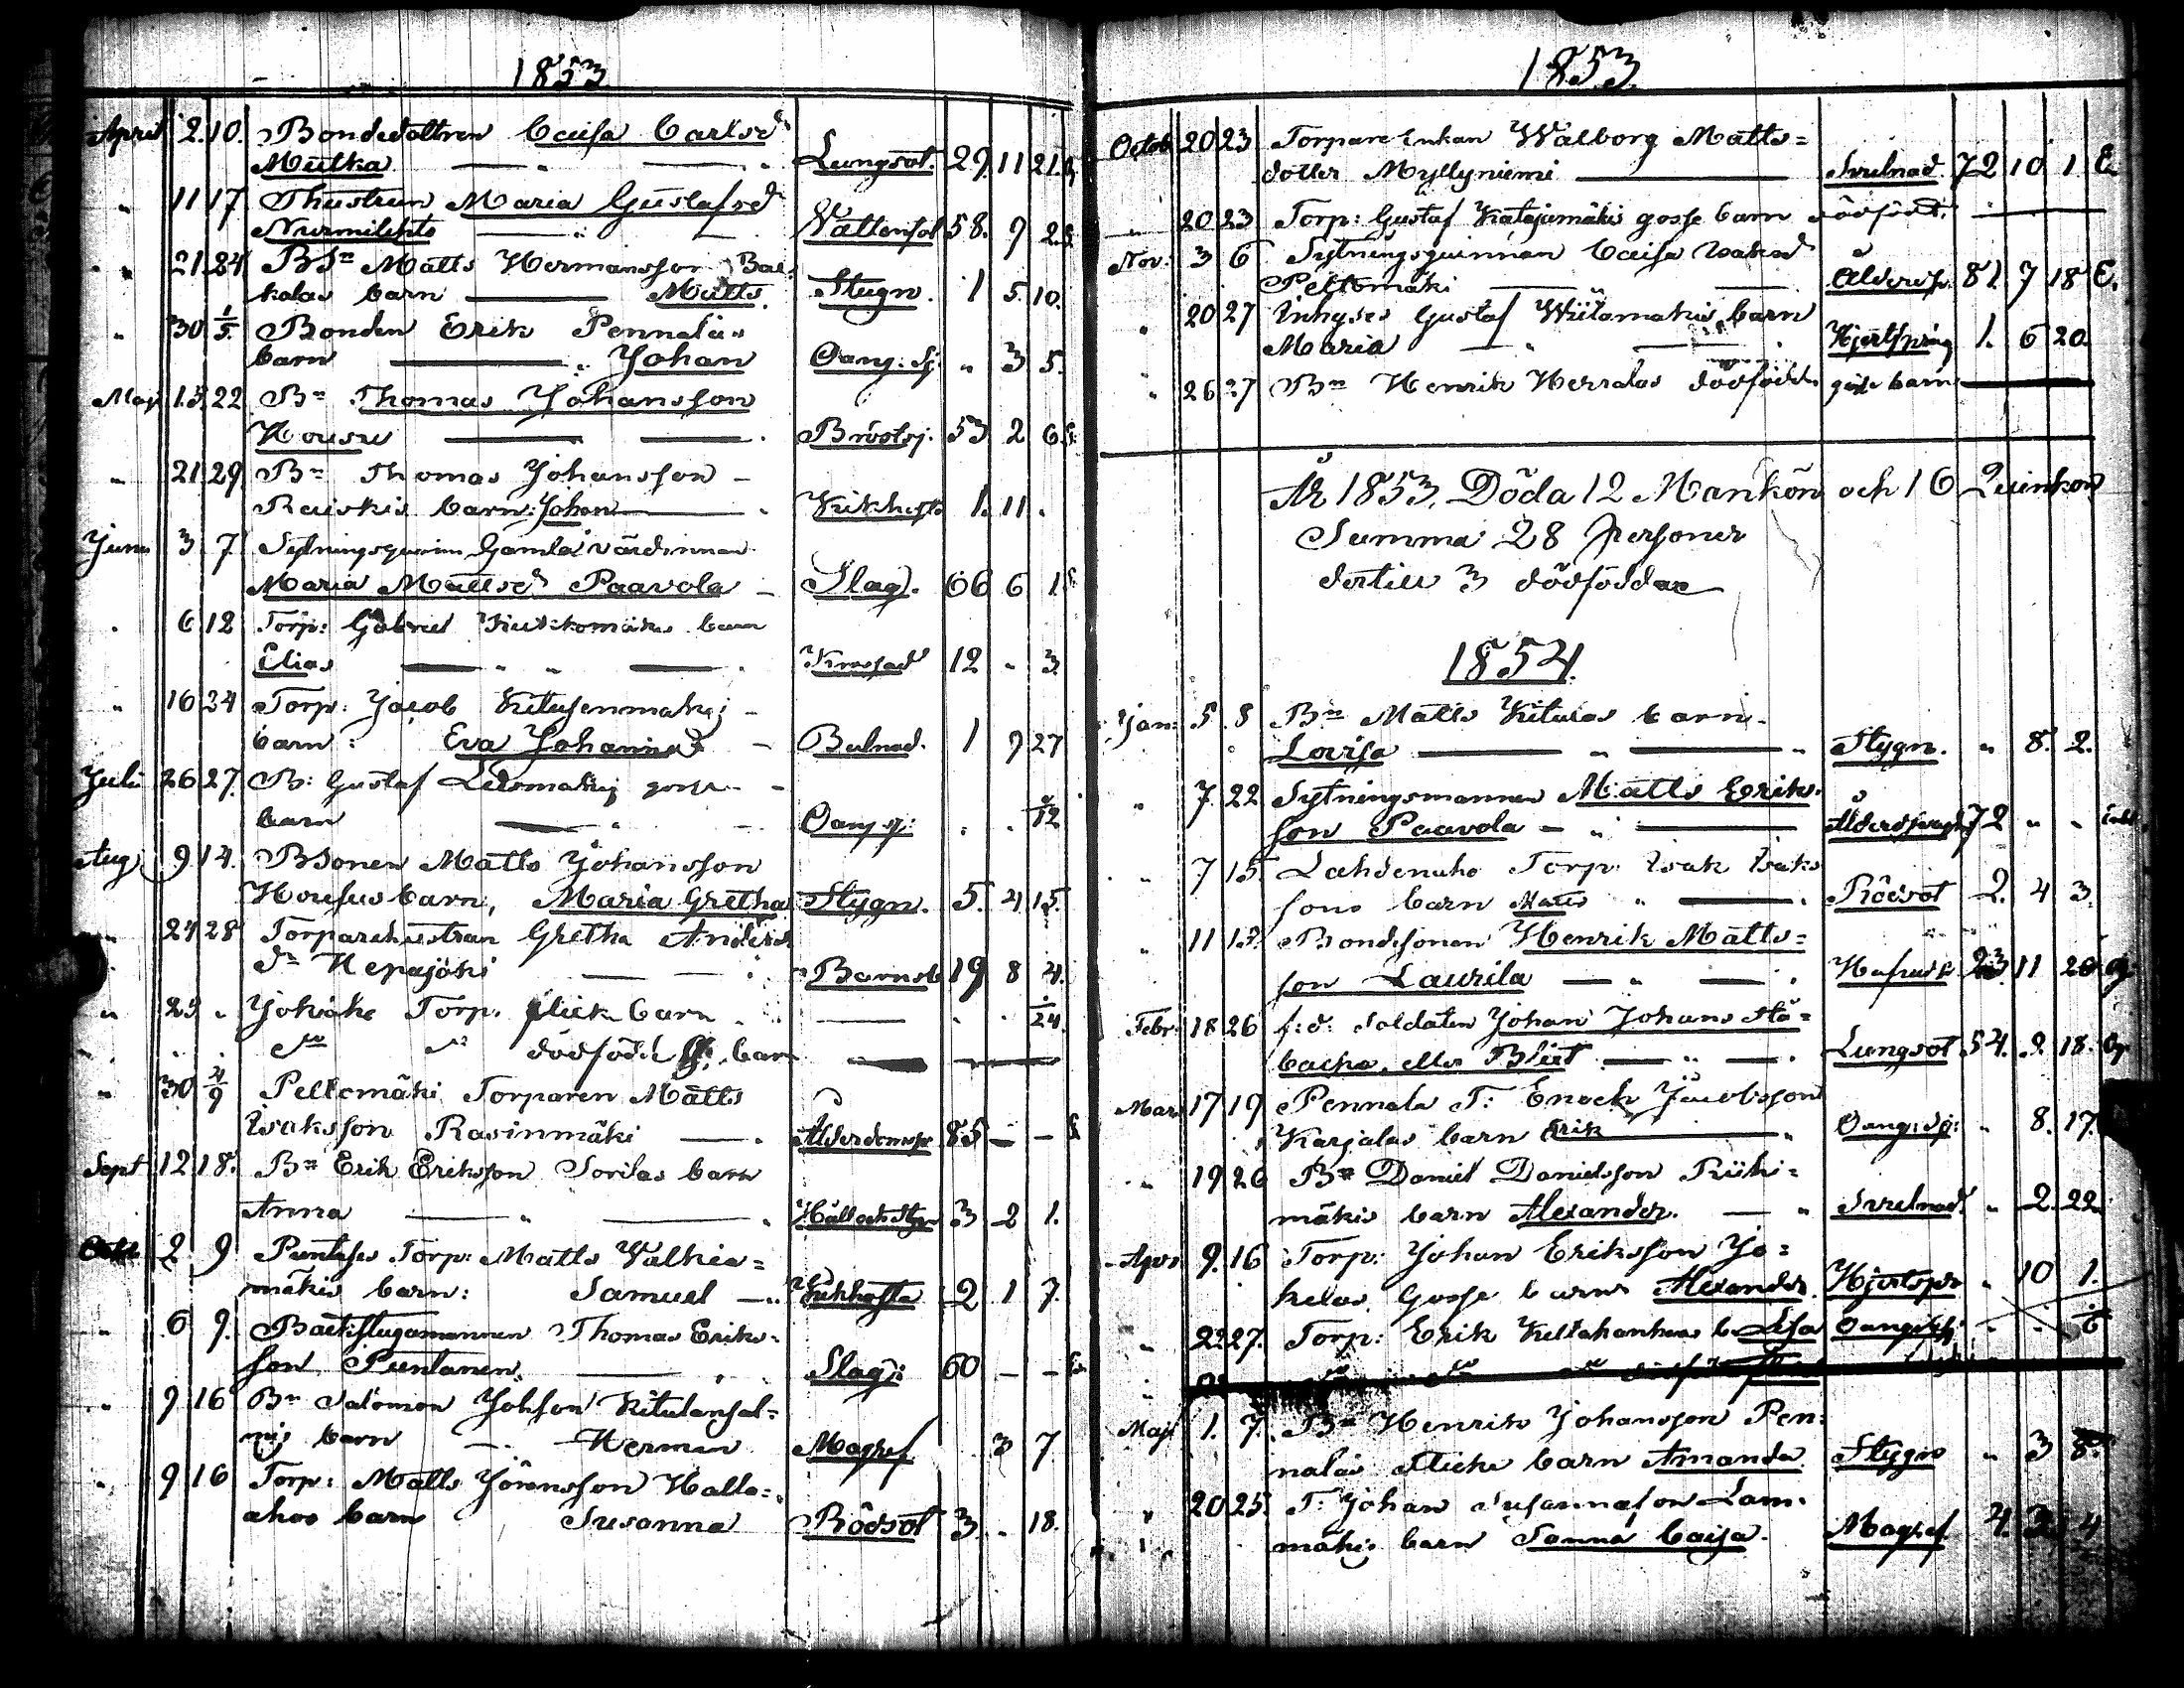 1853.
April 2. 10. Bondedottren Caisa Carlsd
Mutka Lungsot. 29. 11 21.
" 11 17 Hustrun Maria Gustafsd
Nurmilehto Vattensot 58. 9 2.
" 21. 24 BSn Matts Hermansson
kolas barn Matts. Stygn. 1 5. 10.
" 30 1/5. Bonden Erik Pennalas
barn " Johan Oang: sj: " 3 5.
Maj 15. 22 Bn Thomas Johansson
Housu Bröstsj. 53 2 6.
" 21. 29 Bn Thomas Johansson
Rauskis barn: Johan Kikhosta 1. 11.
Juni 3 7 Sytningsquin Gamla värdinnan
Maria Mattsd Paavola Slag. 66 6 1
" 6 12 Torp: Gabriel barn
Elias 12 " 3.
" 16 24 Torp: Jacob Kitusenmäkis
barn: Eva Johanna Bulnad. 1 9 27
Juli 26 27. B: Gustaf gosse
barn Oang. sj: . . /12
Aug 9 14. BSonen Matts Johansson
Housus barn, Maria Gretha Stygn. 5. 4 15.
" 24 28 Torparehustrun Gretha Anders
dr Hepojöki Barnsb 19 8 4.
" 29 " Torp. flick barn /24.
do do dödfödd barn
" 30 4/9 Peltomäki Torparen Matts
Isaksson Rasinmäki Ålderdoms 85 — —
Sept 12 18. Bn Erik Eriksson Sorilas barn
Anna Håll och Styn 3 2 1.
Octob 2 9 Torp: Matts Valkia=
mäkis barn: Samuel Kikhosta 2 1 7.
" 6 9. Backstugumannen Thomas Eriks=
son Puntanen. Slag: 60 — —
" 9 16 Bn Salomon Johsson Kitulansal=
mis barn Herman Magref 3 7
" 9 16 Torp: Matts Hallo=
ahos barn Susanna Rödsot 3. " 18.
1853.
Octob 20 23 Torpare Enkan Walborg Matts=
dotter Myllyniemi Svulnad 72 10 1 E.
" 20 23 Torp: Gustaf Katajamäkis gosse barn dödfödt.
Nov: 3 6 Sytningsquinnan Caisa Isaksd
Peltomäki Ålderd. 81 7 18 E.
" 20 27 Inhyses Gustaf Wiitamäkis barn
Maria Hjertspring 1. 6 20.
" 26 27 Bn Henrik Herralas dödfödda gosse barn
År 1853. Döda 12 Mankön och 16 Quinkön
Summa 28 personer
dertill 3 dödfödda
1854.
Jan: 5. 8 Bn Matts Kitulas barn
Lovisa " Stygn. " 8. 2.
" 7. 22 Sytningsmannen Matts Eriks
son Paavola 72 " "
" 7 15. Lahdenaho Torp. Isak Isaks
sons barn Matts " Rödsot 2. 4 3.
" 11 15. Bondesonen Henrik Matts=
son Laurila 23 11 20
Febr: 18 26 f: d: soldaten Johan Johans Stå=
backa, eller Blixt Lungsot 54. 9 18.
Mars 17 19 Pennala T: Enoch Jacobsson
Karjalas barn Erik Oang: sj: " 8. 17.
" 19 26 Bn Daniel Danielsson Riihi=
mäkis barn Alexander. Svulnad " 2. 22.
Apr. 9. 16 Torp: Johan Eriksson Jo=
kelas Gosse barn Alexander. Hjertspr " 10 1.
" 22 27. Torp: Erik Keltakankas b. Lisa Oang: sj:
Maji 1. 7. Bn Henrik Johansson Pen=
nalas flicke barn Amanda Stygn " 3 8.
" 20 25. T: Johan Susannason Lam=
mäkis barn Sanna Caisa. Magref 4. 2 4